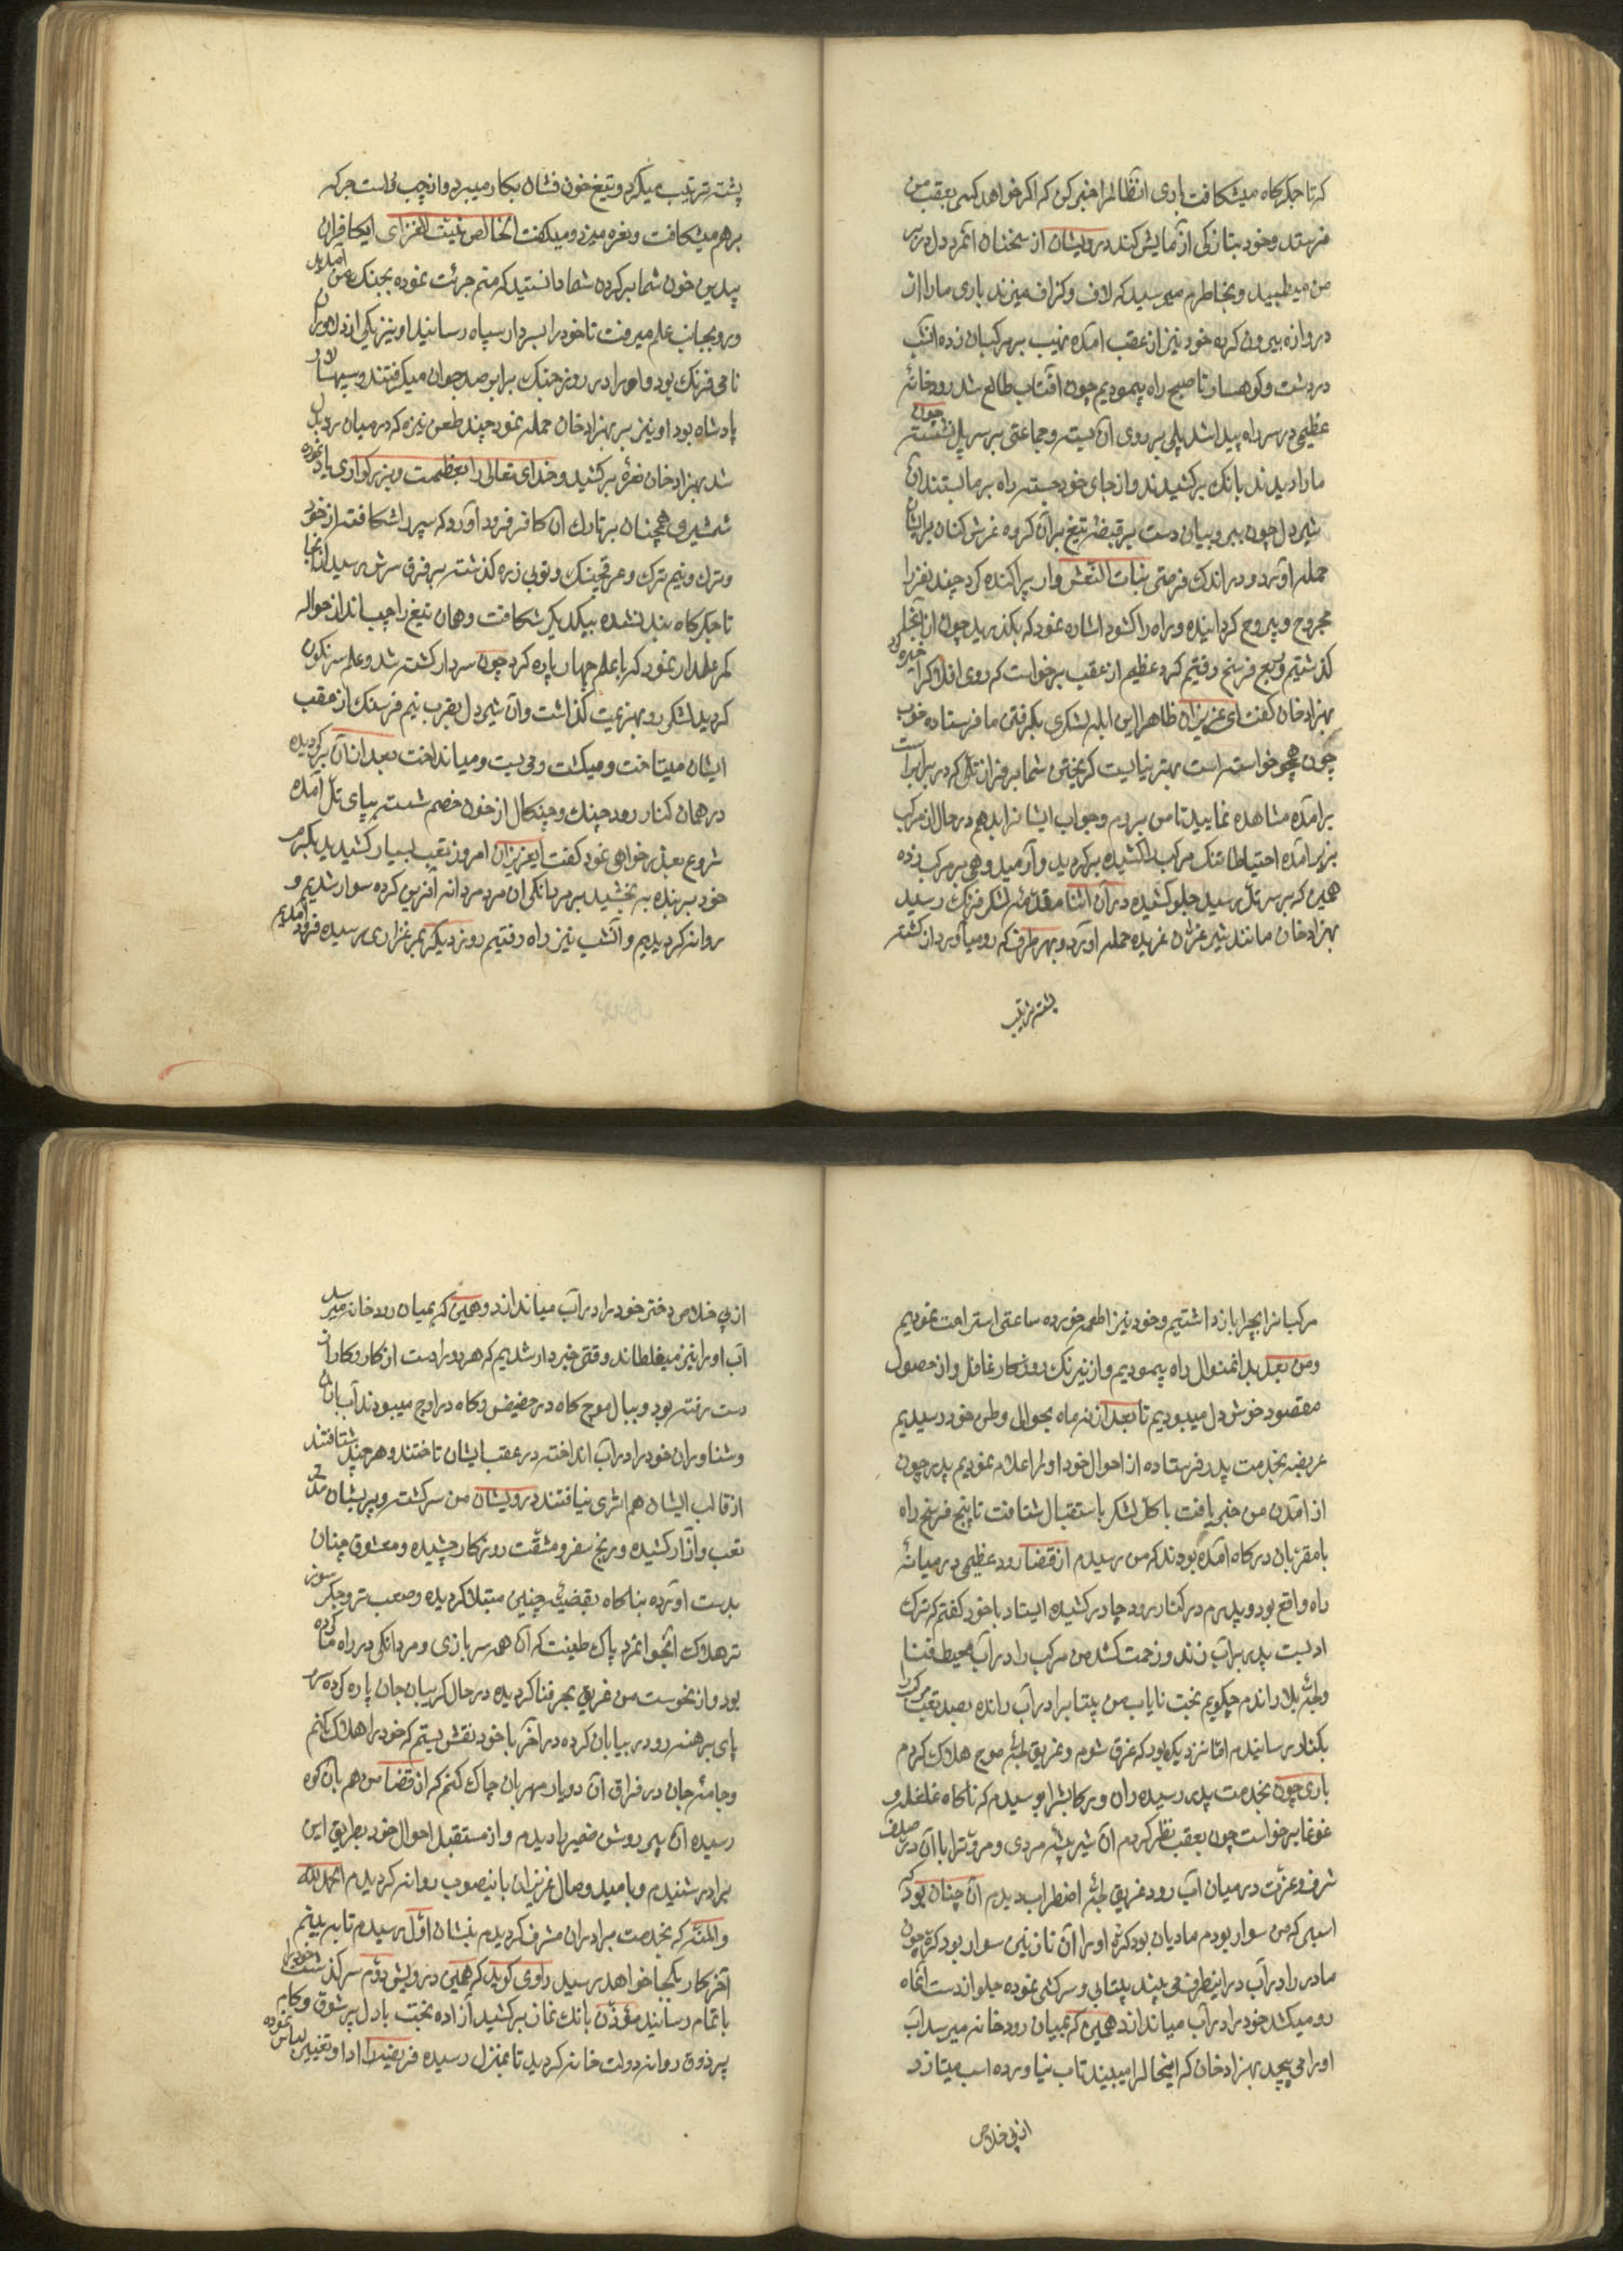 که تا جکرکاه میشکافت باری انظالمرا خبر کن که اکر خواهد کسی بعقب من
فرستد و خود بتازکی آزمایش کند درویشان از سخنان آنمرد دل در بر
من میطپید و بخاطرم میرسید که لاف و کزاف میزند باری ما را از
دروازه بیرون کرده خود نیز از عقب آمده نهیب بر مرکبان زده آنشب
در دشت و کوهسار تا صبح راه پیمودیم چون آفتاب طالع شد رودخانهٔ
عظیمی در سر راه پیدا شد پلی بر روی آن بسته و جماعتی بر سر پل نشسته چون
ما را دیدند بانک برکشیدند و از جای خود جسته راه بر ما بستند آن
شیردل چون ببر و بیان دست بر قبضهٔ تیغ بر آن کروه غرش کنان بر ایشان
حمله آورد و در اندک فرصتی بنات النعش وار پراکنده کرد چند نفر را
مجروح و پیروح کردانیده و راه را کشود اشاره نمود که بکذرید چون از آنجا
کذشتیم و ربع فرسخ رفتیم کرد عظیم از عقب برخواست که روی افلاک را خیره
بهزادخان کفت ای عزیزان ظاهرا این ابله لشکری بکرفتن ما فرستاده خوب
چون همچو خواسته است بهتر نیست کریختن شما بر فراز تل که در برابر است
برآمده مشاهده نمایید تا من بروم و جواب ایشانرا بدهم در حال از مرکب
بزیر آمده احتیاطا تنک مرکب را کشیده برکردید و آرمید و هی بر مرکب زده
همین که بر سر تل رسید جلو کشیده در آن اثنا مقدمهٔ لشکر فرنک رسید
بهزادخان مانند شیر غژان غریده حمله آورد و بهر طرف که رو میآورد از کشته
پشته ترتیب
پشته ترتیب میکرد و تیغ خون فشان بکار میبرد و از چپ و راست جرکه
برهم میشکافت و نعره میزد و میکفت ای کافران
پیدین خون شما بر کردن شما دانستید که منم جرئت نموده بجنک من آمدید
و رو بجانب علم میرفت تا خود را بسردار سپاه رسانید او نیز یکی از دلاوران
نامی فرنک بود و او را در روز جنک برابر صد جوان میکرفتند و سپهسالار
پادشاه بود او نیز بر بهزادخان حمله نمود چند طعن نیزه که در میان رد بدل
شد بهزادخان نعره برکشید و خدای تعالی را بعظمت و بزرکواری یاد نموده
شمشیر همچنان بر تارک آن کافر فرود آورد که سپر را شکافته از خود
و ترک و نیم ترک و عرقچینک و توبی زره کذشته بر فرق سرش رسید از آنجا
تا جکرکاه بند نشده بیکدیکر شکافت و همان تیغ را چپ انداز حواله
کمر علمدار نمود که با علم چهار پاره کرد چون سردار کشته شد و علم سرنکون
کردید لشکر رو بهزیمت کذاشت و آن شیردل بقرب نیم فرسنک از عقب
ایشان میتاخت و میکشت و می بست و میانداخت بعد از آن برکردیده
در همان کنار رود چنک و چنکال از خون خصم شسته بپای تل آمده
شروع بعذرخواهی نمود کفت ایعزیزان امروز تعب بسیار کشیدید بکرم
خود بر بنده ببخشید بر مردانکی ان مرد مردانه آفرین کرده سوار شدیم و
روانه کردیدیم و آنشب نیز راه رفتیم روز دیکر بمرغزاری رسیده فرود آمدیم
مرکبانرا بچرا باز داشتیم و خود نیز اطعمه خورده ساعتی استراحت نمودیم
و من بعد بدانمنوال راه پیمودیم و از نیرنک روزکار غافل و از حصول
مقصود خوش دل میبودیم تا بعد از نه ماه بحوالی وطن خود رسیدیم
عریضه بخدمت پدر فرستاده از احوال خود او را اعلام نمودیم پدر چون
از آمدن من خبر یافت با کل لشکر باستقبال شتافت تا پنج فرسخ راه
با مقربان درکاه آمده بودند که من رسیدم از قضا رود عظیمی در میانهٔ
راه واقع بود و پدرم در کنار رود چادر کشیده ایستاد با خود کفتم که ترک
ادبست پدر بر آب زند و زحمت کشد من مرکب را در آب محیط فنا
و لجهٔ بلا راندم چکویم بخت نایاب من بیتابرا در آب رانده بصد تعب مرکب را
بکنار رسانیدم اما نزدیک بود که غرق شوم و غریق لجهٔ موج هلاک کردم
باری چون بخدمت پدر رسیده ران و رکابشرا بوسیدم که ناکاه غلغله و
غوغا برخواست چون بعقب نظر کردم آن شیر بیشهٔ مردی و مروترا با آن در صدف
شرف و عزت در میان آب رود غریق لجهٔ اضطراب دیدم آن چنان بود که
اسبی که من سوار بودم مادیان بود کره او را آن نازنین سوار بود کره چون
مادر را در آب در اینطرف می بیند بیتابی و سرکشی نموده جلو از دست آنماه
رو میکشد خود را در آب میاندازد همین که بمیان رودخانه میرسد آب
او را می پیچد بهزادخان که اینحال را میبیند تاب نیاورده اسب میتازد
از پی خلاص
از پی خلاص دختر خود را در آب میاندازد و همین که بمیان رودخانه میرسد
آب او را نیز میغلطاند وقتی خبردار شدیم که هر دو را دست از کار و کار از
دست رفته بود و ببال موج کاه در حضیض و کاه در اوج میبودند آب بازان
و شناوران خود را در آب انداخته در عقب ایشان تاختند و هر چند شتافتند
از قالب ایشان هم اثری نیافتند درویشان من سرکشته و پریشان مدتی
تعب و آزار کشیده و رنج سفر و مشقت روزکار چشیده و معشوق چنان
بدست آورده بناکاه بقضیهٔ چنین مبتلا کردیده و صعب تر و جکر سوز
تر هلاک آنجوانمرد پاک طینت که آن همه سربازی و مردانکی در راه ما کرده
بود و از نحوست من غریق بحر فنا کردیده در حال کریبان جان پاره کرده سر و
پای برهنه رو در بیابان کرده در آخر با خود نقش بستم که خود را هلاک کنم
و جامهٔ جان در فراق آن دو یار مهربان چاک کنم که از قضا من هم بآن کوه
رسیده آن پیر روشن ضمیر را دیدم و از مستقبل احوال خود بطریق این
برادر شنیدم و با مید وصال عزیزان باینصوب روانه کردیدم الحمدلله
والمنه که بخدمت برادران مشرف کردیدم بنشان اول رسیدم تا به بینم
آخر کار بکجا خواهد رسید راوی کوید که همین درویش دوم سرکذشت خود را
باتمام رسانید مؤذن بانک نماز برکشید آزاده بخت با دل پر شوق و کام
پر ذوق روانه دولت خانه کردید تا بمنزل رسیده فریضه را ادا و تغییر لباس نموده